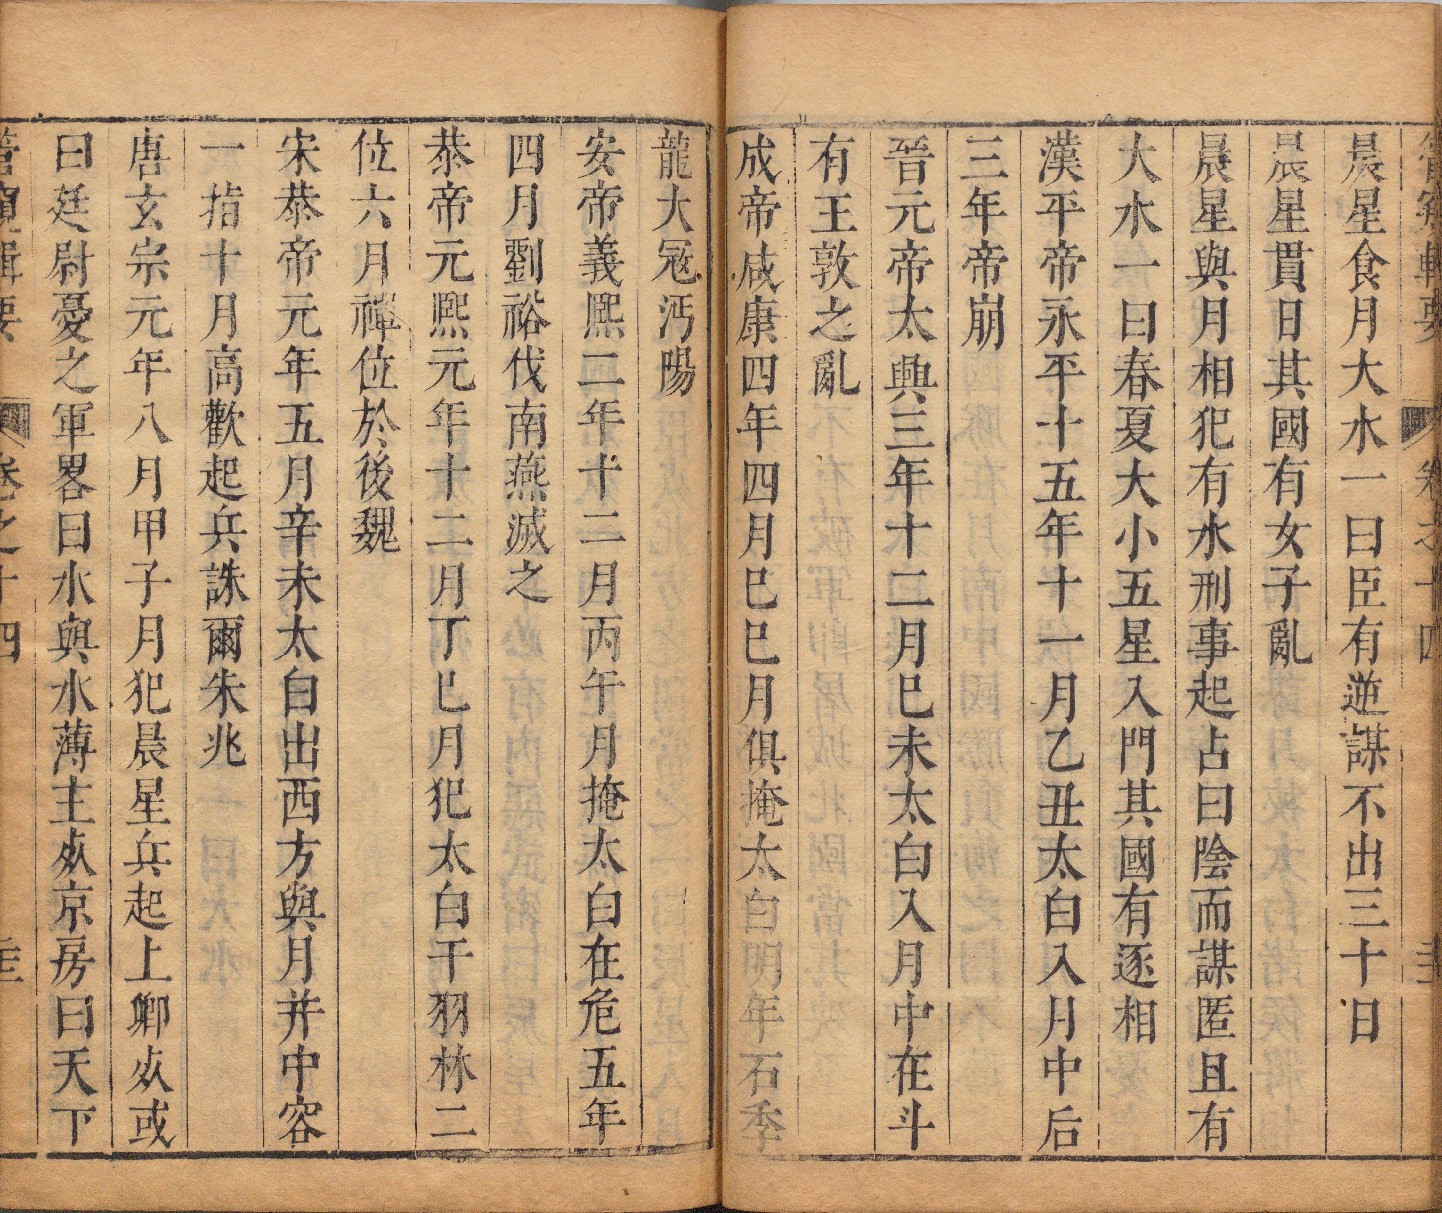 管窺輯要 卷之十四 圭
晨星食月大水一曰臣有逆謀不出三十日
晨星貫日其國有女子亂
晨星與月相犯有水刑事起占曰陰而謀匿且有
大水一曰春夏大小五星入門其國有逐相
漢平帝永平十五年十一月乙丑太白入月中后
三年帝崩
晉元帝太興三年十二月巳未太白入月中在斗
有王敦之亂
成帝咸康四年四月巳巳月俱掩太白明年石季
龍大冦沔陽
安帝義熙二年十二月丙午月掩太白在危五年
四月劉裕伐南燕滅之
恭帝元熙元年十二月丁巳月犯太白于羽林二
位六月禪位於後魏
宋恭帝元年五月辛未太白出西方與月并中容
一指十月高歡起兵誅爾朱兆
唐玄宗元年八月甲子月犯晨星兵起上卿灸或
曰廷尉憂之軍畧曰水與水薄主灸京房曰天下
管窺輯要 卷之十四 圭